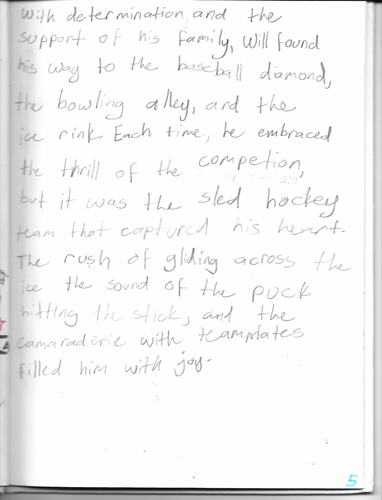 with determination and the
support of his family, Will found
his way to the baseball diamond,
the bowling alley, and the
ice rink. Each time, he embraced
the thrill of the competion,
but it was the sled hockey
team that captured his heart.
The rush of gliding across the
ice the sound of the puck
hitting the stick, and the
camaraderie with teammates
filled him with joy.
5